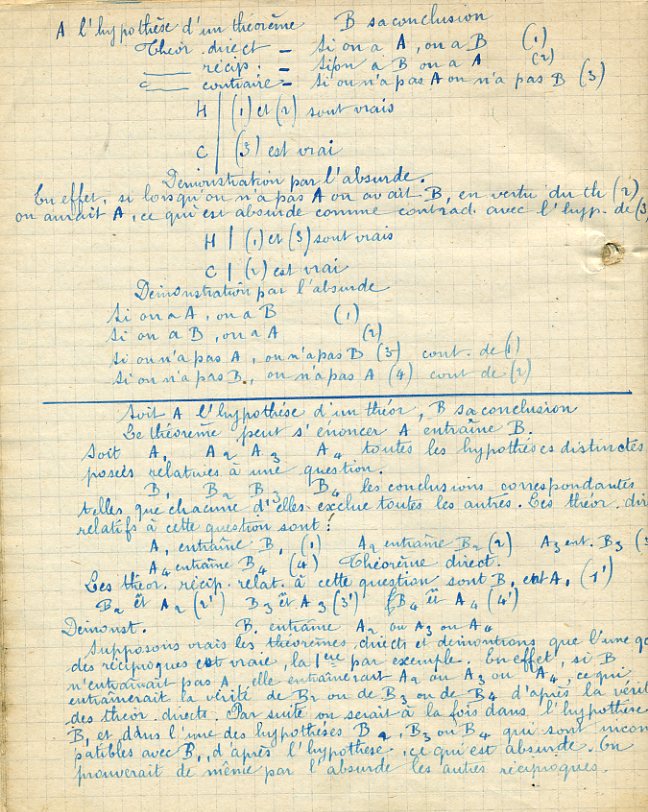 A l'hypothèse d'un théorème B sa conclusion
Théor. direct – Si on a A, on a B (1)
____ récip. – Si on a B on a A (2)
____ contraire – Si on n'a pas A on n'a pas B (3)
H | (1) et (2) sont vrais
C | (3) est vrai
Démonstration par l'absurde.
En effet, si lorsqu'on n'a pas A on avait B, en vertu du th (2)
on aurait A, ce qui est absurde comme contrad. avec l'hyp. de (3
H | (1) et (3) sont vrais
C | (2) est vrai
Démonstration par l'absurde
Si on a A, on a B (1)
Si on a B, on a A (2)
Si on n'a pas A, on n'a pas B (3) cont. de (1)
Si on n'a pas B, on n'a pas A (4) cont de (2)
Soit A l'hypothèse d'un théor, B sa conclusion
Le théorème peut s'énoncer A entraîne B.
Soit A1 A2 A3 A4 toutes les hypothèses distinctes
posées relatives à une question.
B1 B2 B3 B4 les conclusions correspondantes
telles que chacune d'elles exclue toutes les autres. Les théor. dir
relatifs à cette question sont :
A1 entraîne B1 (1) A2 entraîne B2 (2) A3 ent. B3 (3
A4 entraîne B4 (4) Théorème direct.
Les théor. récip. relat. à cette question sont B1 ent A1 (1')
B2 A2 (2') B3 A3 (3') B4 A4 (4')
Démonst. B1 entraîne A2 ou A3 ou A4
Supposons vrais les théorèmes directs et démontrons que l'une
des réciproques est vraie, la 1ère par exemple. En effet, si B
n'entraînait pas A, elle entraînerait A2 ou A3 ou A4, ce qui
entraînerait la vérité de B2 ou de B3 ou de B4 d'après la vérit
des théor. directs. Par suite on serait à la fois dans l'hypothèse
B1 et dans l'une des hypothèses B2, B3 ou B4 qui sont incom
patibles avec B1, d'après l'hypothèse, ce qui est absurde. On
prouverait de même par l'absurde les autres réciproques.